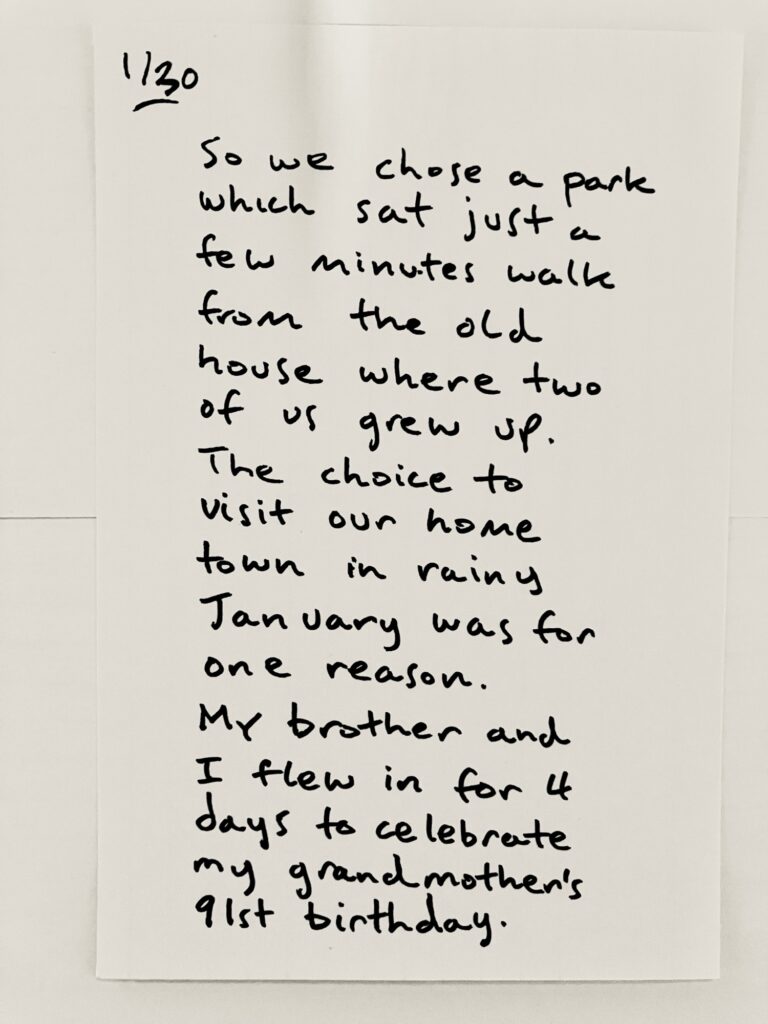 1/30
So we chose a park
which sat just a
few minutes walk
from the old
house where two
of us grew up.
The choice to
visit our home
town in rainy
January was for
one reason.
My brother and
I flew in for 4
days to celebrate
my grandmother's
91st birthday.